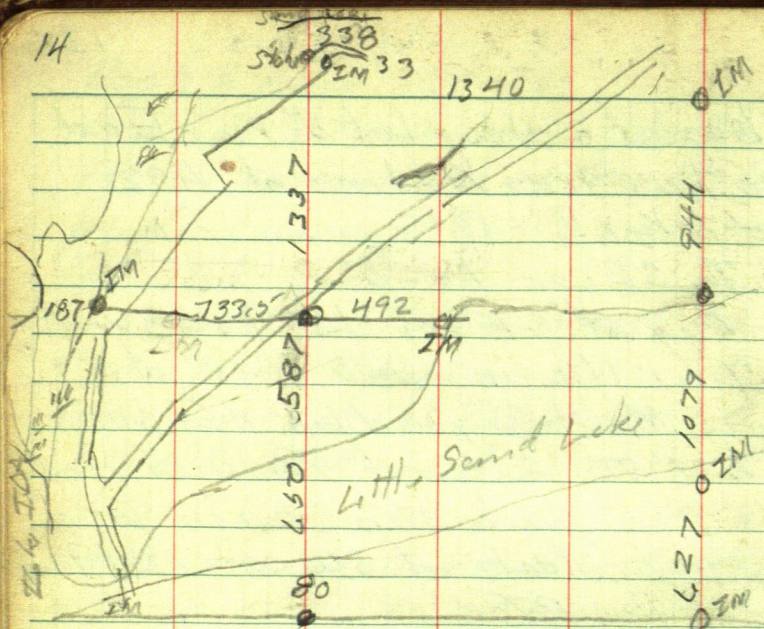 14
338
IM 33
1340
IM
1337
944
IM
187
733.5
492
IM
IM
587
1079
Little Sand Lake
IM
650
627
80
IM
IM